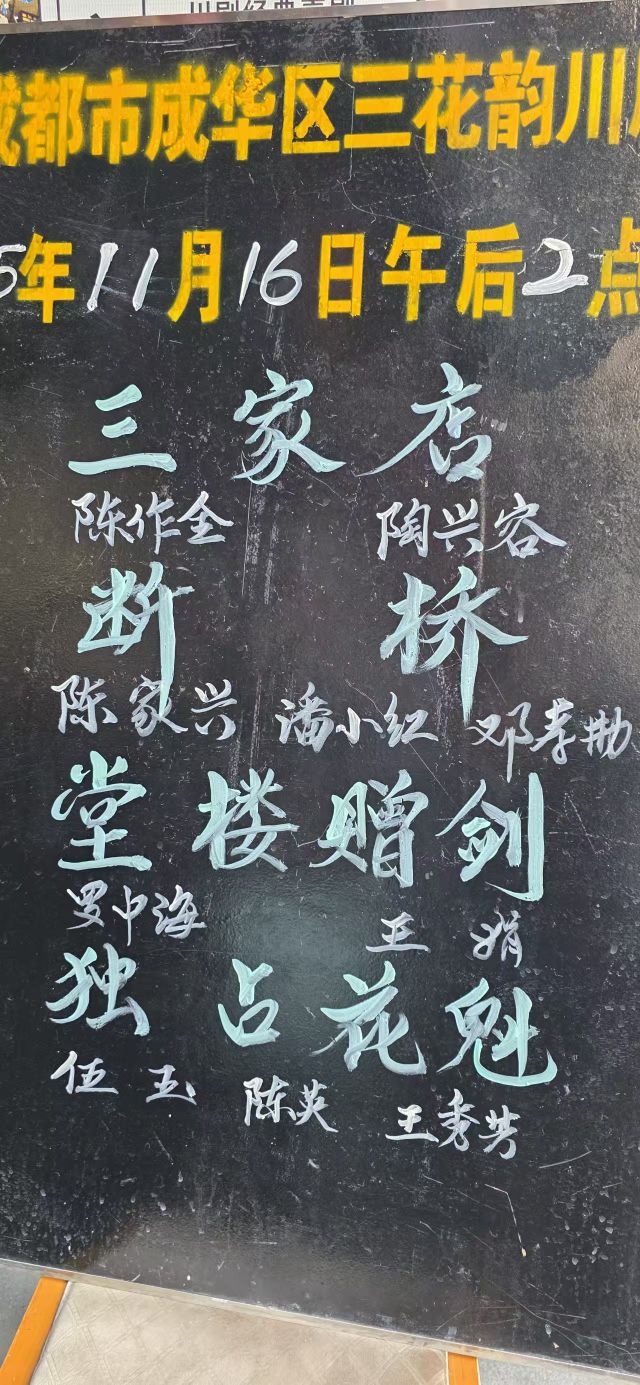 川剧经典喜剧
成都市成华区三花韵川
5年11月16日午后2点
三家店
陈作全 陶兴容
断桥
陈家兴 潘小红 邓孝勘
堂楼赠剑
罗中海 王娟
独占花魁
伍玉 陈英 王秀芬